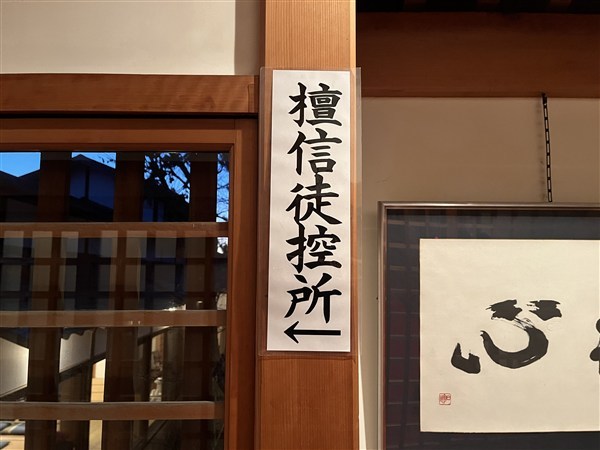 檀信徒控所
←
心